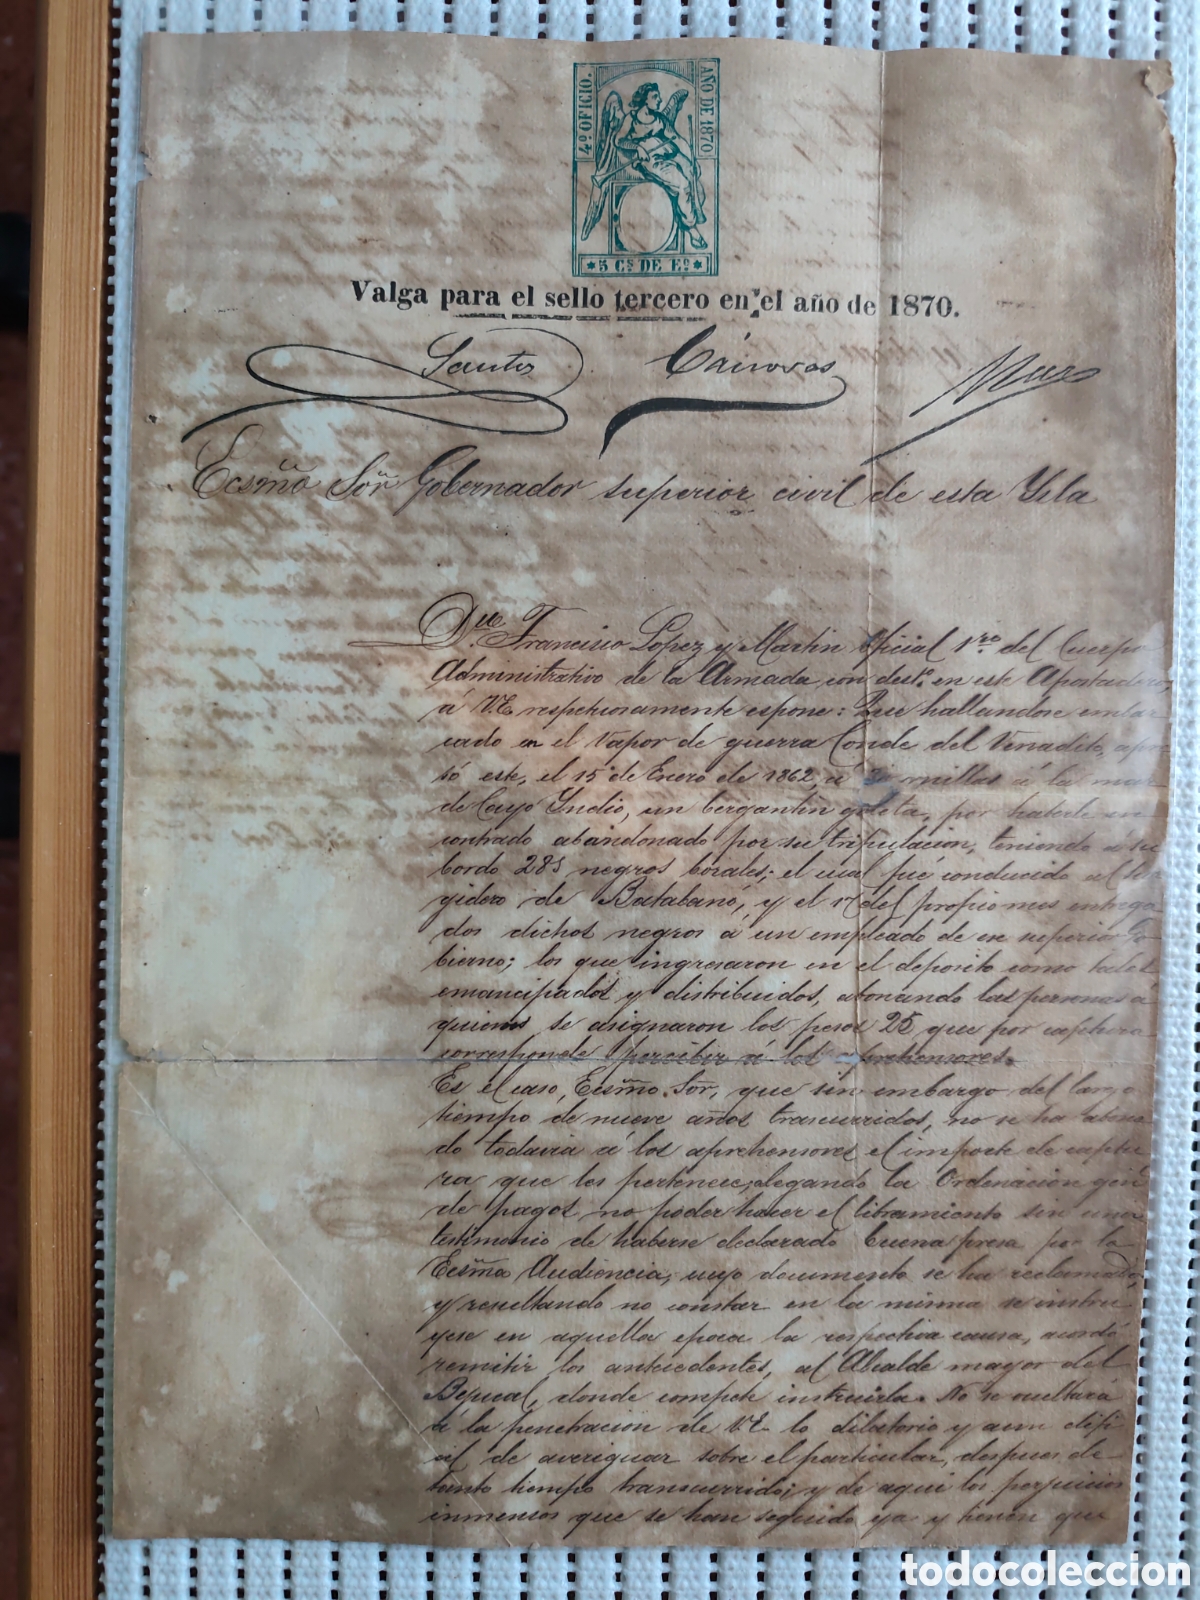 4º OFICIO.
AÑO DE 1870
*5 Cs DE Eo*
Valga para el sello tercero en el año de 1870.
Santos Cánovas
Ecsmo Sor Gobernador superior civil de esta Ysla
Dn Francisco Lopez y Martin Oficial 1ro del Cuerpo
Administrativo de la Armada con desto en este Apostadero,
á V.E. respetuosamente espone: Que hallandose embar
cado en el Vapor de guerra Conde del Venadito, apre
só este, el 15 de Enero de 1862, a millas á la mar
de Cayo Yndio, un bergantin goleta, por haberle en
contrado abandonado por su tripulacion, teniendo a su
bordo 285 negros bosales; el cual fué conducido al Sur
gidero de Batabanó, y el 17 del propio mes entrega
dos dichos negros á un empleado de ese superior Go
bierno; los que ingresaron en el deposito como tales
emancipados y distribuidos, abonando las personas á
quienes se asignaron los pesos 25 que por captura
corresponde percibir á los aprehensores.
Es el caso, Ecsmo. Sor, que sin embargo del largo
tiempo de nueve años trascurridos, no se ha abona
do todavia á los aprehensores el importe de captu
ra que les pertenece, alegando la Ordenacion genl
de pagos no poder hacer el libramiento sin un
testimonio de haberse declarado buena presa por la
Ecsma Audiencia, cuyo documento se ha reclamado,
y resultando no constar en la misma se instru
yese en aquella epoca la respectiva causa, acordó
remitir los antecedentes, al Alcalde mayor del
Bejucal, donde compete instruirla. No se ocultará
á la penetracion de V.E. lo dilatorio y aun difi
cil de averiguar sobre el particular, despues de
tanto tiempo transcurrido; y de aqui los perjuicios
inmensos que se han seguido ya y tienen que
todocoleccion